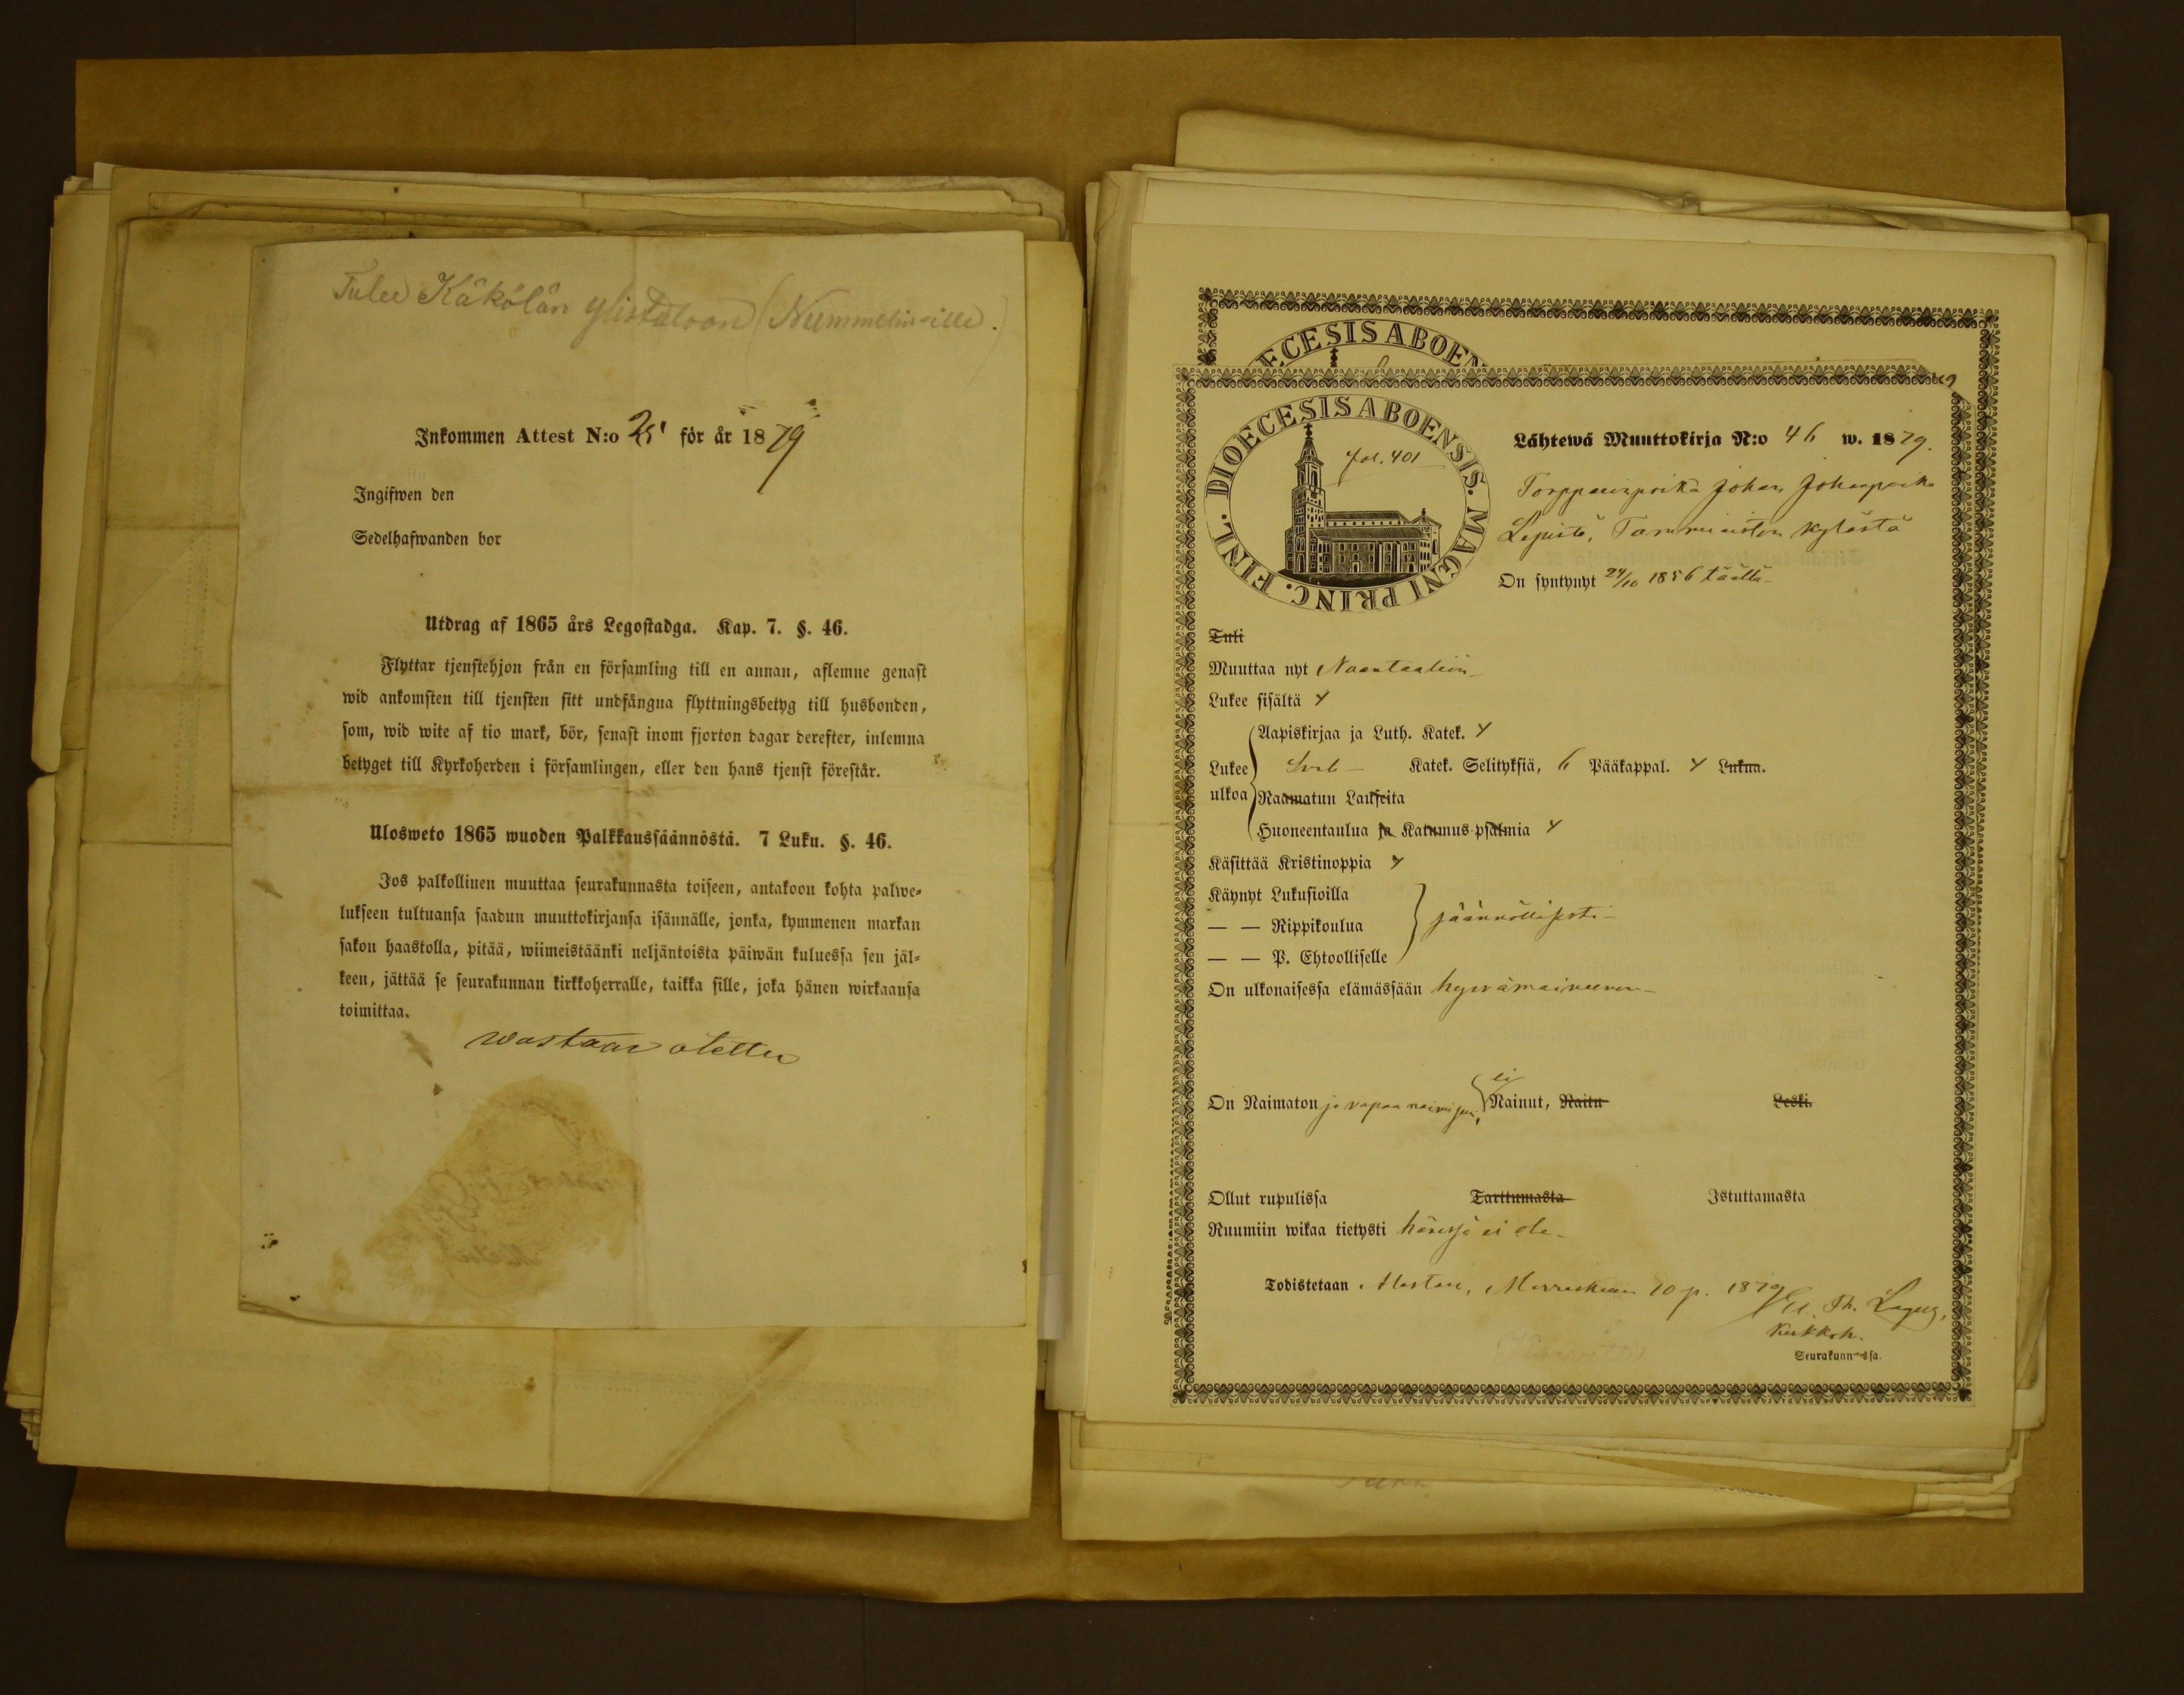 Tulee Käkölän Ylistaloon (Nummelin-ille.)
Inkommen Attest N:o 25 för år 1879
Ingifwen den
Sedelhafwanden bor
Utdrag af 1865 års Legostadga. Kap. 7. §. 46.
Flyttar tjenstehjon från en församling till en annan, aflemne genast
wid ankomsten till tjensten sitt undfångna flyttningsbetyg till husbonden,
som, wid wite af tio mark, bör, senast inom fjorton dagar derefter, inlemna
betyget till Kyrkoherden i församlingen, eller den hans tjenst förestår.
Ulosweto 1865 wuoden Palkkaussäännöstä. 7 Luku. §. 46.
Jos palkollinen muuttaa seurakunnasta toiseen, antakoon kohta palwe-
lukseen tultuansa saadun muuttokirjansa isännälle, jonka, kymmenen markan
sakon haastolla, pitää, wiimeistäänki neljäntoista päiwän kuluessa sen jäl-
keen, jättää se seurakunnan kirkkoherralle, taikka sille, joka hänen wirkaansa
toimittaa.
wastaan otettu
DIOECESIS ABOENSIS. MAGNI PRINC. FINL.
fol. 401
Lähtewä Muuttokirja N:o 46 w. 1879.
Torpparinpoika Johan Johanpoika
Lepistö, Tammiaisten kylästä
On syntynyt 24/10 1856 täällä
Tuli
Muuttaa nyt Naantaaliin
Lukee sisältä
Lukee ulkoa
Aapiskirjaa ja Luth. Katek.
Katek. Selityksiä, 6 Pääkappal. Lukua.
Raamatun Lauseita
Huoneentaulua ja Katumus-psalmia
Käsittää Kristinoppia
Käynyt Lukusioilla
— — Rippikoulua säännöllisesti
— — P. Ehtoolliselle
On ulkonaisessa elämässään hyvämaineinen
On Naimaton ja vapaa naimisen, ei Nainut, Naitu Leski.
Ollut rupulissa Tarttumasta Istuttamasta
Ruumiin wikaa tietysti hänessä ei ole
Todistetaan Maskun, Marraskuun 10 p. 1879
Th. Lagus,
Kirkkoh.
Seurakunnassa.